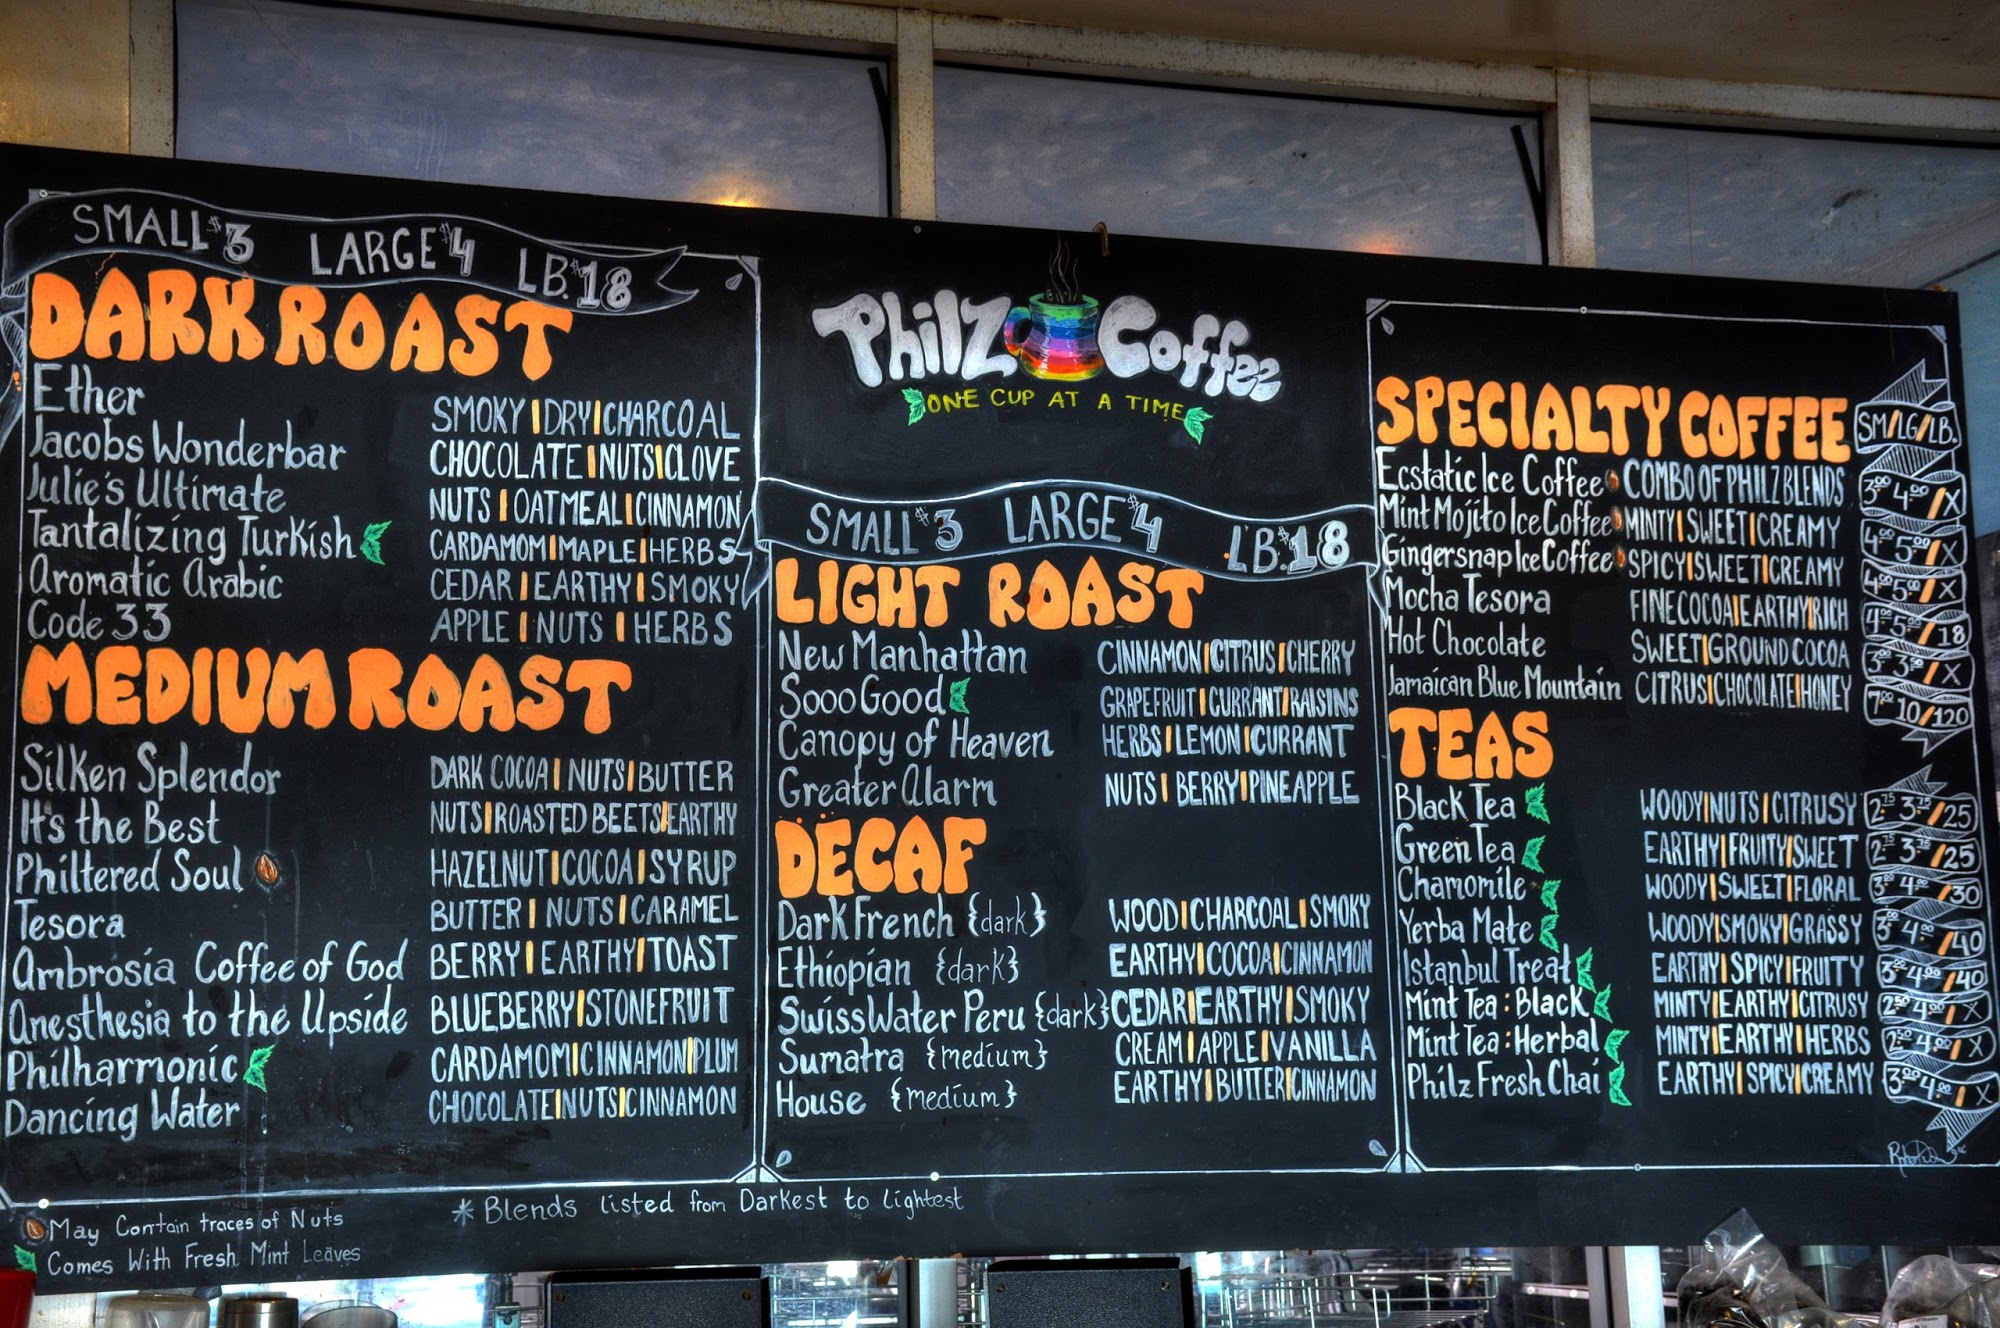 SMALL $3 LARGE $4 LB. $18
DARK ROAST
Ether SMOKY | DRY | CHARCOAL
Jacobs Wonderbar CHOCOLATE | NUTS | CLOVE
Julie's Ultimate NUTS | OATMEAL | CINNAMON
Tantalizing Turkish CARDAMOM | MAPLE | HERBS
Aromatic Arabic CEDAR | EARTHY | SMOKY
Code 33 APPLE | NUTS | HERBS
MEDIUM ROAST
Silken Splendor DARK COCOA | NUTS | BUTTER
It's the Best NUTS | ROASTED BEETS | EARTHY
Philtered Soul HAZELNUT | COCOA | SYRUP
Tesora BUTTER | NUTS | CARAMEL
Ambrosia Coffee of God BERRY | EARTHY | TOAST
Anesthesia to the Upside BLUEBERRY | STONEFRUIT
Philharmonic CARDAMOM | CINNAMON | PLUM
Dancing Water CHOCOLATE | NUTS | CINNAMON
May Contain traces of Nuts
Comes With Fresh Mint Leaves
* Blends listed from Darkest to Lightest
Philz Coffee
ONE CUP AT A TIME
SMALL $3 LARGE $4 LB. $18
LIGHT ROAST
New Manhattan CINNAMON | CITRUS | CHERRY
Sooo Good GRAPEFRUIT | CURRANT | RAISINS
Canopy of Heaven HERBS | LEMON | CURRANT
Greater Alarm NUTS | BERRY | PINEAPPLE
DECAF
Dark French {dark} WOOD | CHARCOAL | SMOKY
Ethiopian {dark} EARTHY | COCOA | CINNAMON
Swiss Water Peru {dark} CEDAR | EARTHY | SMOKY
Sumatra {medium} CREAM | APPLE | VANILLA
House {medium} EARTHY | BUTTER | CINNAMON
SPECIALTY COFFEE SM/LG/LB.
Ecstatic Ice Coffee COMBO OF PHILZ BLENDS 3.00 4.00/X
Mint Mojito Ice Coffee MINTY | SWEET | CREAMY 4.00 5.00/X
Gingersnap Ice Coffee SPICY | SWEET | CREAMY 4.00 5.00/X
Mocha Tesora FINE COCOA | EARTHY | RICH 4.00 5.00/18
Hot Chocolate SWEET | GROUND COCOA 3.00 3.50/X
Jamaican Blue Mountain CITRUS | CHOCOLATE | HONEY 7.00 10/120
TEAS
Black Tea WOODY | NUTS | CITRUSY 2.75 3.75/25
Green Tea EARTHY | FRUITY | SWEET 2.75 3.75/25
Chamomile WOODY | SWEET | FLORAL 3.00 4.00/30
Yerba Mate WOODY | SMOKY | GRASSY 3.00 4.00/40
Istanbul Treat EARTHY | SPICY | FRUITY 3.00 4.00/40
Mint Tea: Black MINTY | EARTHY | CITRUSY 2.50 4.00/X
Mint Tea: Herbal MINTY | EARTHY | HERBS 2.50 4.00/X
Philz Fresh Chai EARTHY | SPICY | CREAMY 3.00 4.00/X